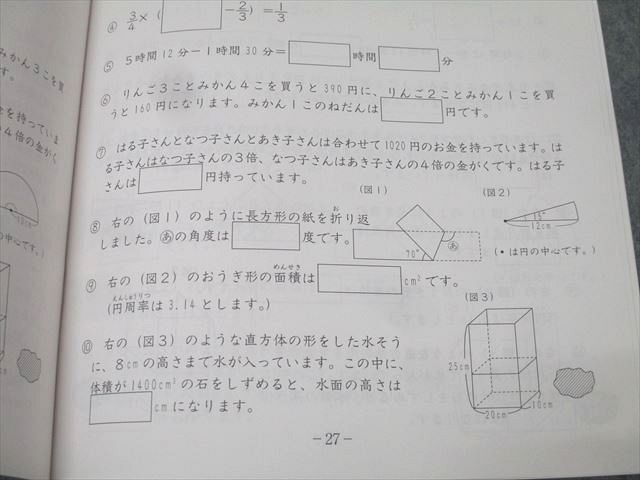 ④ 3/4×( −2/3)=1/3
⑤ 5時間12分−1時間30分= 時間 分
⑥ りんご3ことみかん4こを買うと390円に、りんご2ことみかん1こを買
うと160円になります。みかん1このねだんは 円です。
⑦ はる子さんとなつ子さんとあき子さんは合わせて1020円のお金を持っています。は
る子さんはなつ子さんの3倍、なつ子さんはあき子さんの4倍の金がくです。はる子
さんは 円持っています。
(図1)
(図2)
⑧ 右の(図1)のように長方形の紙を折り返
お
しました。あの角度は 度です。
70°
あ
15°
12cm
(・は円の中心です。)
⑨ 右の(図2)のおうぎ形の面積は cm²です。
めんせき
(円周率は3.14とします。)
えんしゅうりつ
(図3)
⑩ 右の(図3)のような直方体の形をした水そう
に、8cmの高さまで水が入っています。この中に、
体積が1400cm³の石をしずめると、水面の高さは
cmになります。
25cm
20cm
10cm
−27−
みかん3こを買
です。
を持っていま
の4倍の金がく
12cm
の中心です。)